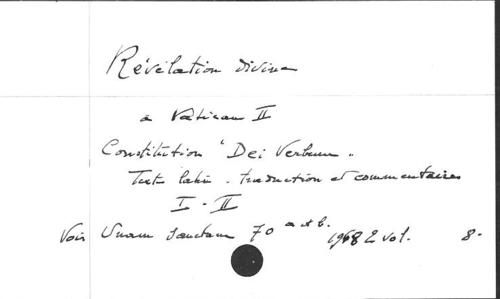 Révélation divine
a Vatican II
Constitution "Dei Verbum"
Texte latin - traduction et commentaires
I - II
Voir Unam Sanctam 70 a et b. 1968 2 vol. 8-